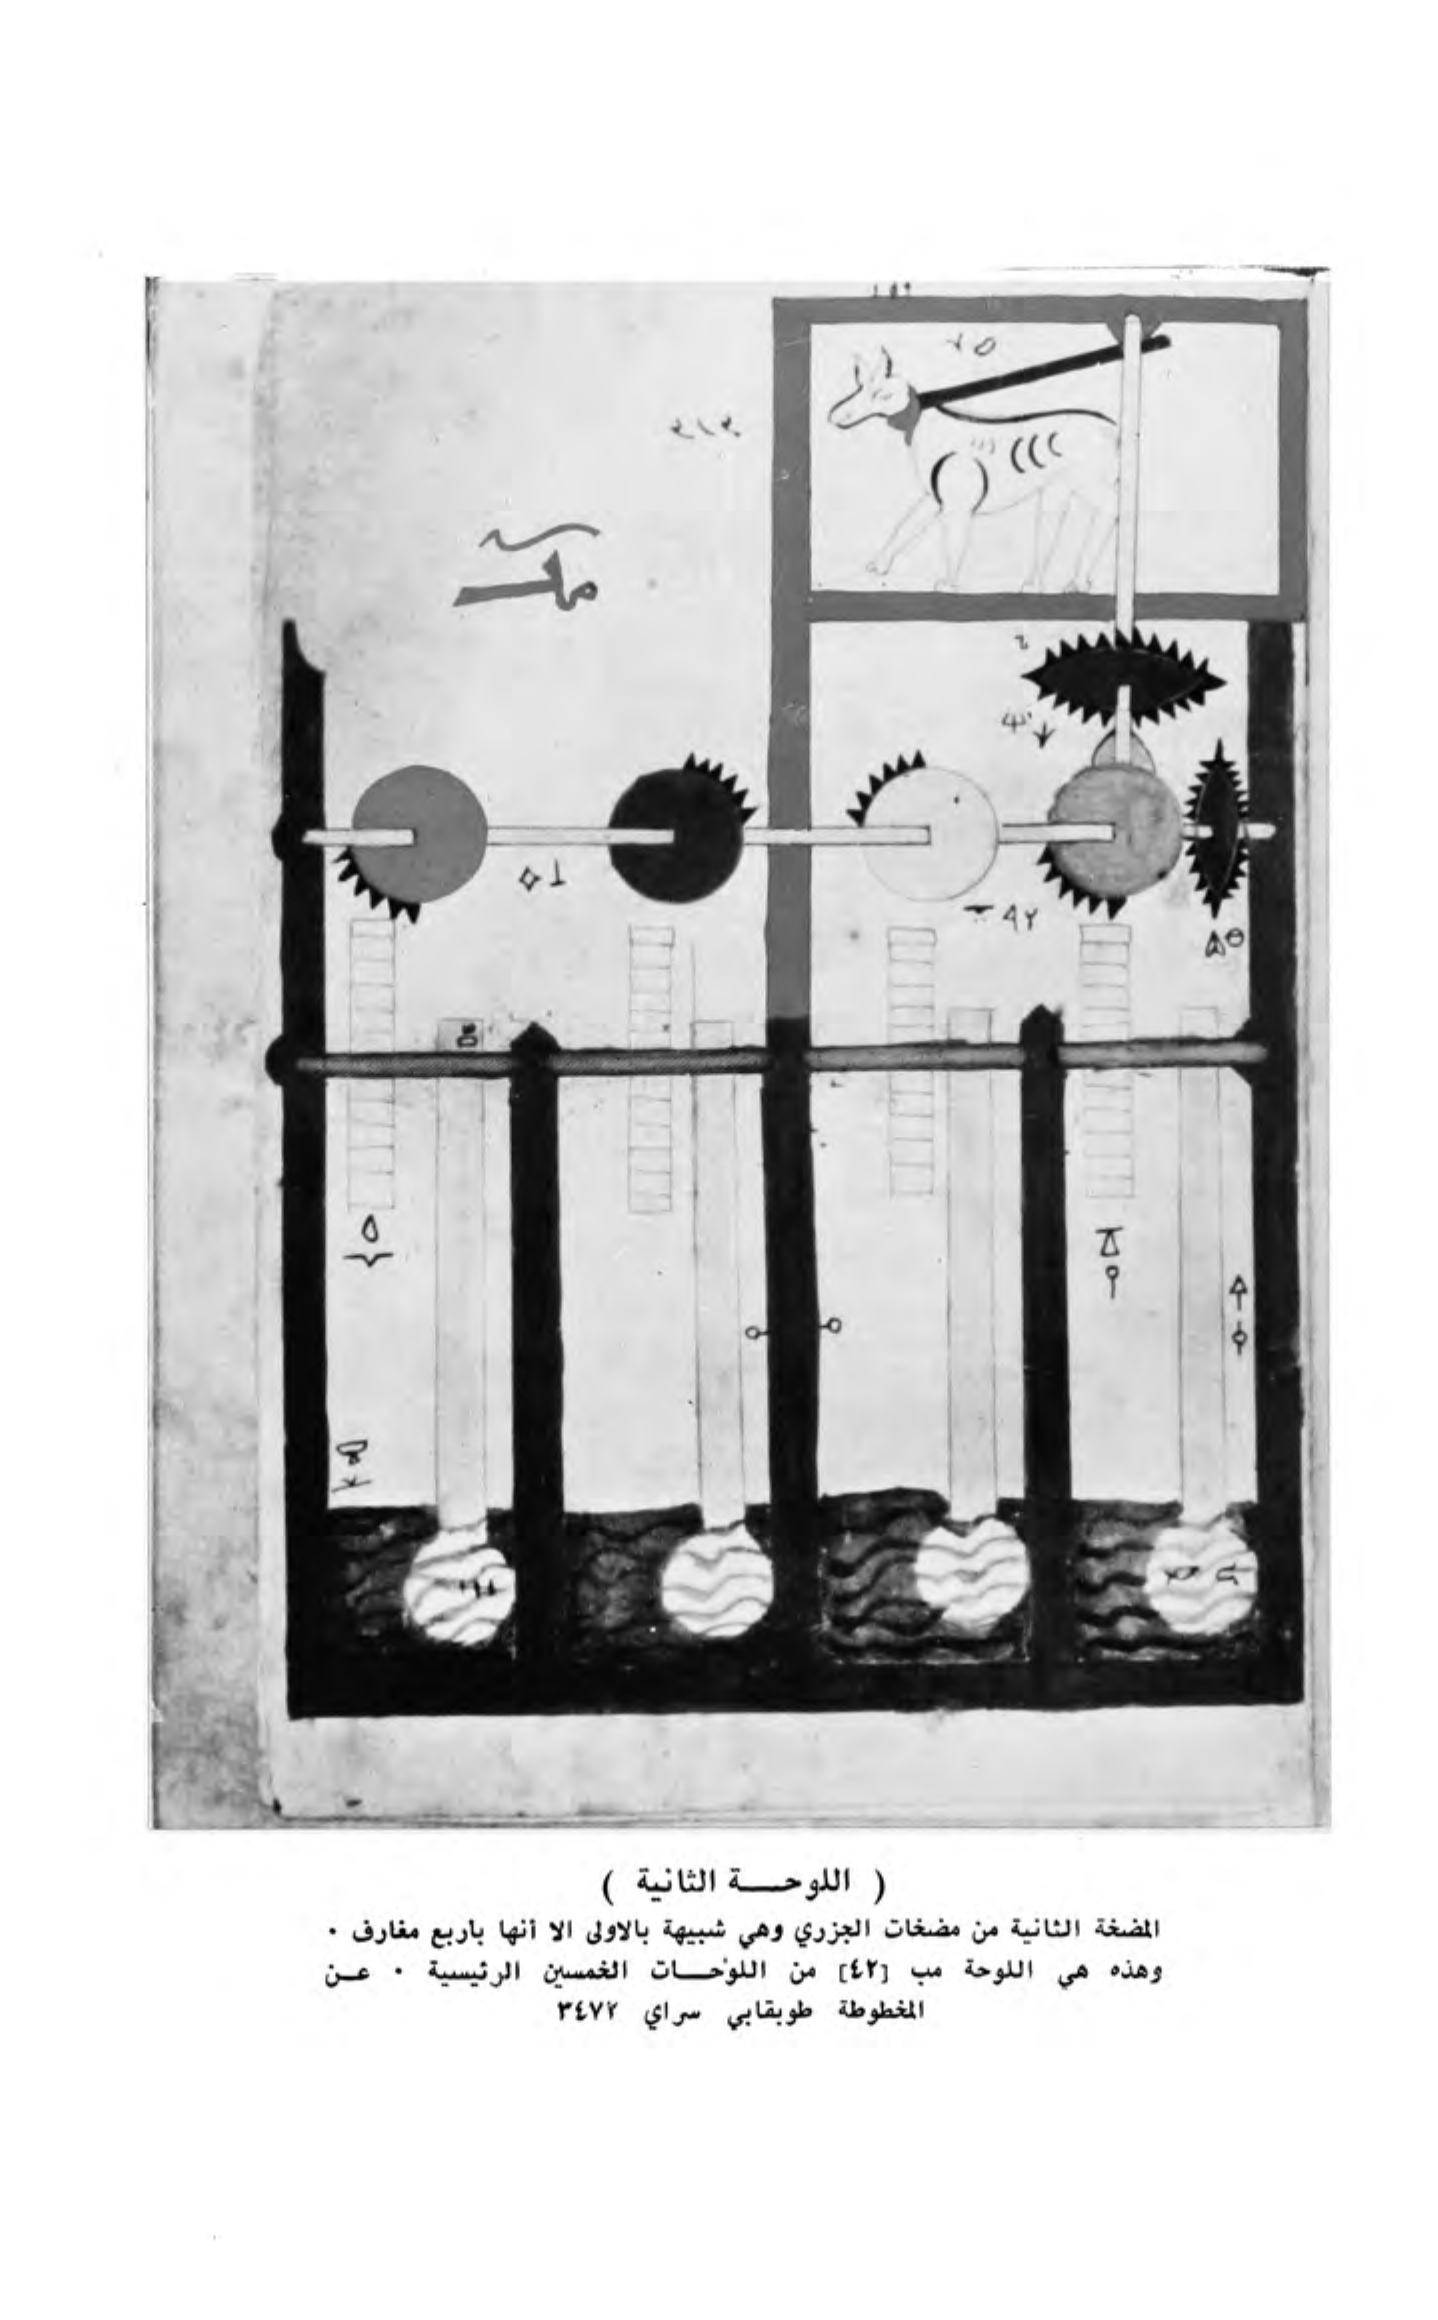 ( اللوحـــة الثانية )
المضخة الثانية من مضخات الجزري وهي شبيهة بالاولى الا أنها بأربع مغارف ٠
وهذه هي اللوحة مب [٤٢] من اللوحـــات الخمسين الرئيسية ٠ عــن
المخطوطة طوبقابي سراي ٣٤٧٢